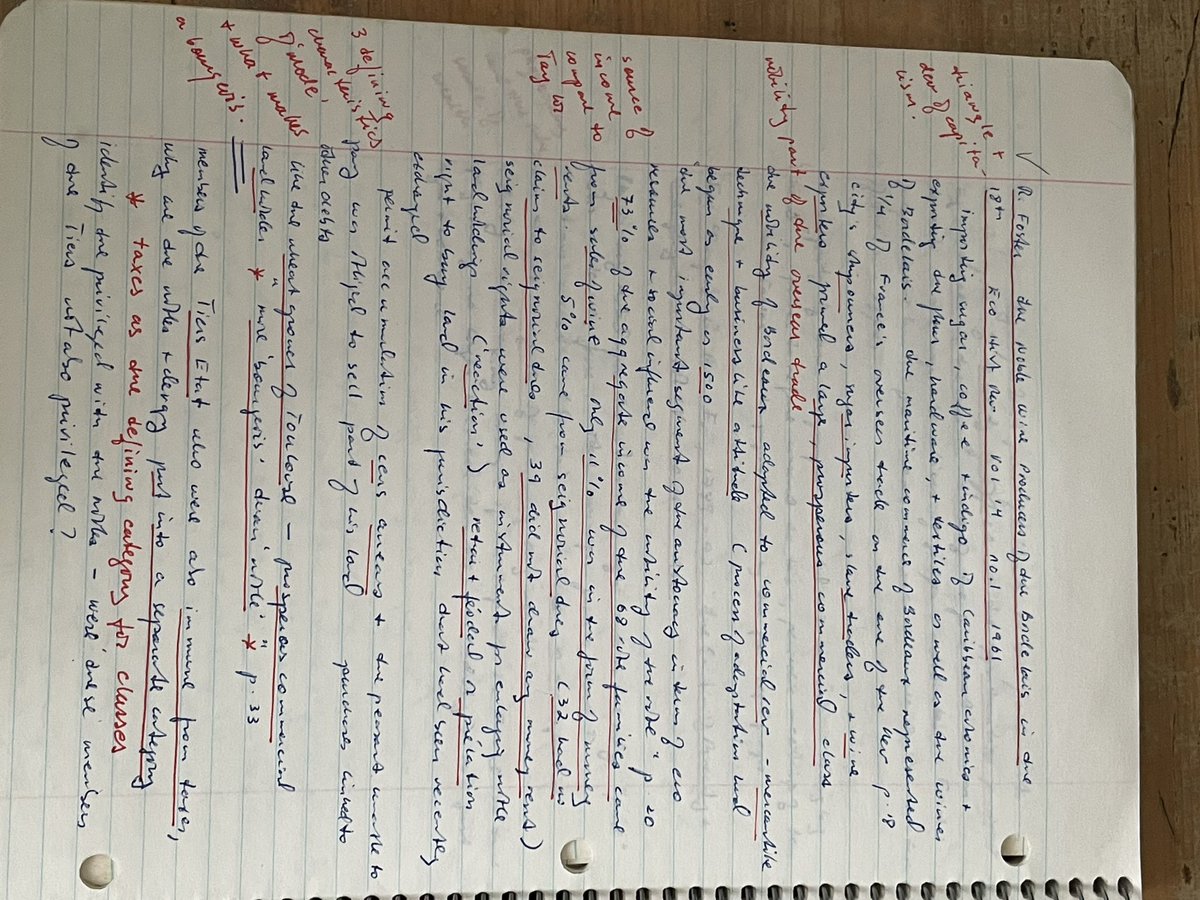 √ R. Forster the noble wine producers of the Bordelais in the
18th Eco Hist Rev vol 14 no. 1 1961
triangle +
dev of capita-
lism.
importing sugar, coffee + indigo of Caribbean +
exporting the flour, hardware, + textiles as well as the wines
of Bordelais. the maritime commerce of Bordeaux represented
1/4 of France's overseas trade on the eve of the Rev p. 18
city's shipowners, sugar importers, slave traders, + wine
exporters formed a large, prosperous commercial class
nobility part of the overseas trade
the nobility of Bordeaux adapted to commercial - mercantile
technique + business like attitude (process of adaptation had
began as early as 1500
the most important segment of the aristocracy in terms of eco
resources + social influence was the nobility of the robe" p. 20
source of
income
compare to
Taylor
73% of the aggregate income of the 68 robe families came
from sale of wine only 11% was in the form of money
rents. 5% came from seignorial dues (32 had no
claim to seignorial dues, 39 did not draw any money rent)
seignorial rights were used as instrument for enlarging noble
landholdings ('reaction') retrait féodal or prélation
right to buy land in his jurisdiction that had been recently
exchanged
permit accumulation of cens arrears + the peasant unable to
pay was obliged to sell part of his land
their debts
3 defining
characteristics
of mode,
+ what makes
a bourgeois.
like the wheat grower of Toulouse - prosperous commercial
landlords * more 'bourgeois' than 'noble'" * p. 33
members of the Tiers Etat who were also immune from taxes,
why are the nobles + clergy put into a separate category
* taxes as the defining category for classes
identify the privileged with the nobles - were these members
of the Tiers not also privileged?